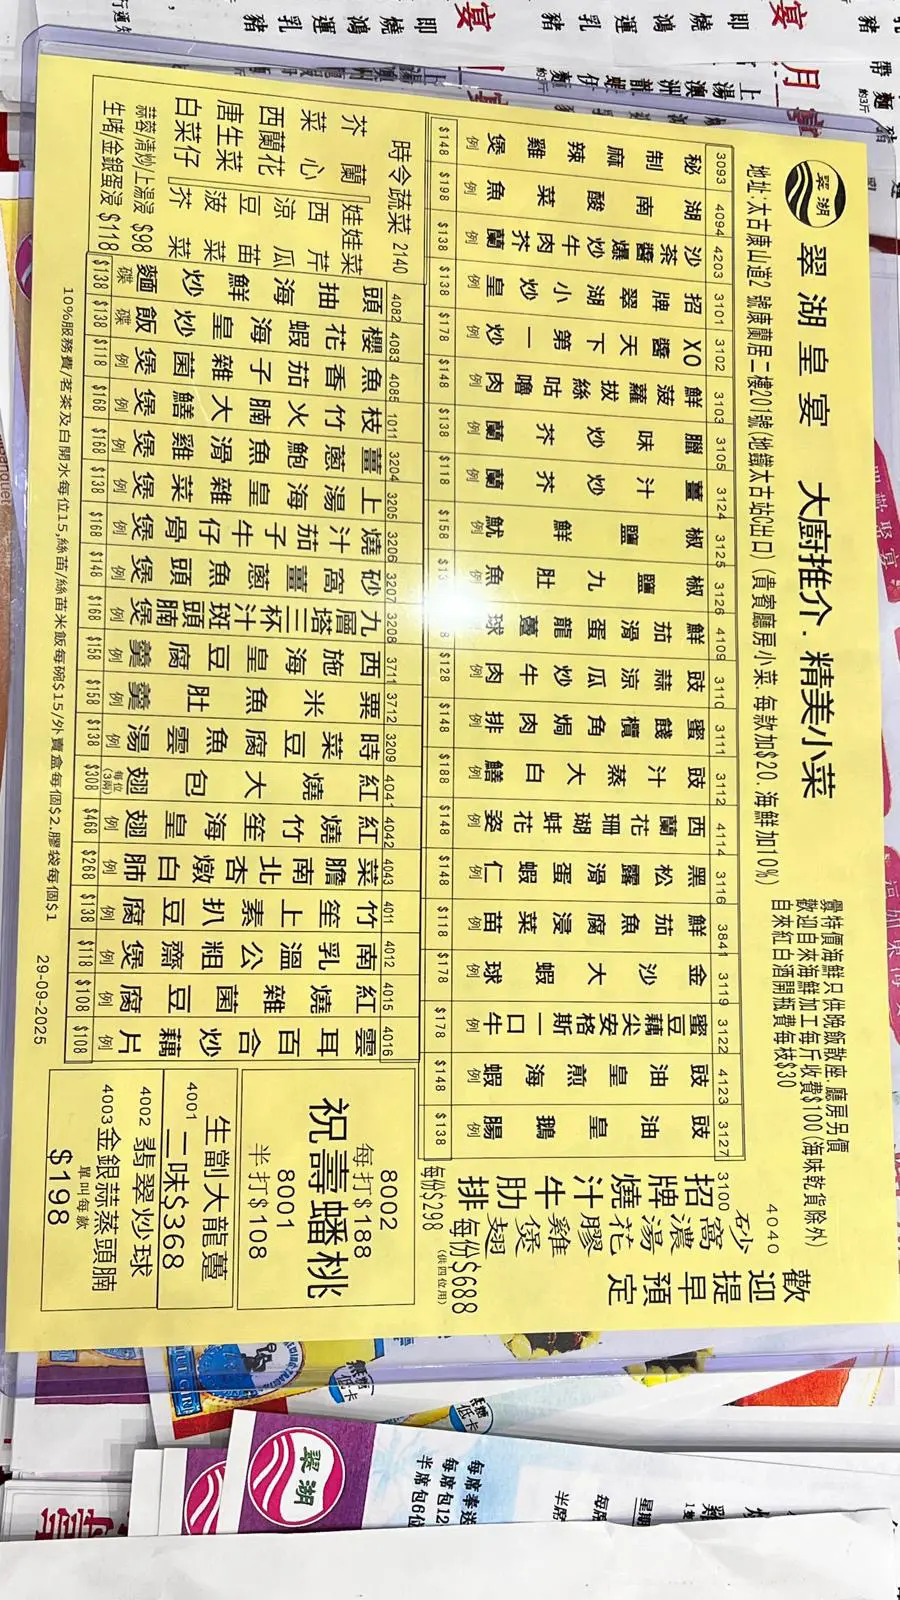 翠湖
翠湖皇宴 大廚推介．精美小菜
地址:太古康山道2號康蘭居二樓201號(地鐵太古站C出口)(貴賓廳房小菜．每款加$20．海鮮加10%)
特價海鮮只供晚飯散座．廳房另價
歡迎自來海鮮加工每斤收費$100(海味乾貨除外)
自來紅白酒開瓶費每枝$30
3093 秘制麻辣雞煲 例 $148
4094 湖南酸菜魚 例 $198
4203 沙茶醬爆炒牛肉芥蘭 例 $138
3101 招牌翠湖小炒皇 例 $138
3102 XO醬天下第一炒 例 $178
3103 鮮菠蘿拔絲咕嚕肉 例 $148
3105 臘味炒芥蘭 例 $138
3124 薑汁炒芥蘭 例 $118
3125 椒鹽鮮魷 例 $158
3126 椒鹽九肚魚 例
4109 鮮茄滑蛋龍躉球 例
3110 豉蒜涼瓜炒牛肉 例 $128
3111 蜜餞欖角焗肉排 例 $148
3112 豉汁蒸大白鱔 例 $188
4114 西蘭花珊瑚蚌花姿 例 $148
3116 黑松露滑蛋蝦仁 例 $148
3841 鮮茄魚腐浸菜苗 例 $118
3119 金沙大蝦球 例 $178
3122 蜜豆藕尖安格斯一口牛 例 $178
4123 豉油皇煎海蝦 例 $148
3127 豉油皇鵝腸 例 $138
3100 招牌燒汁牛肋排 每份$298
4040 砂窩濃湯花膠雞煲翅 每份$688 (供四位用)
歡迎提早預定
時令蔬菜 2140
芥蘭 娃娃菜
菜心 西芹
西蘭花 涼瓜
唐生菜 豆苗
白菜仔 菠菜
芥菜
蒜蓉清炒/上湯浸 $98
生啫金銀蛋浸 $118
4082 頭抽海鮮炒麵 碟 $138
4083 櫻花蝦海皇炒飯 碟 $138
4085 魚香茄子雜菌煲 例 $118
1011 枝竹火腩大鱔煲 例 $168
3204 薑蔥鮑魚滑雞煲 例 $168
3205 上湯海皇雜菜煲 例 $138
3206 燒汁茄子牛仔骨煲 例 $168
3207 砂窩薑蔥魚頭煲 例 $148
3208 九層塔三杯汁斑頭腩煲 例 $168
3711 西施海皇豆腐羹 例 $158
3712 粟米魚肚羹 例 $158
3209 時菜豆腐魚雲湯 例 $138
4041 紅燒大包翅 每位(3兩) $308
4042 紅燒竹笙海皇翅 例 $468
4043 菜膽南北杏燉白肺 例 $268
4011 竹笙上素扒豆腐 例 $138
4012 南乳溫公粗齋煲 例 $118
4015 紅燒雜菌豆腐 例 $108
4016 雲耳百合炒藕片 例 $108
祝壽蟠桃
8002
每打$188
8001
半打$108
生劏大龍躉
4001 二味$368
4002 翡翠炒球
4003 金銀蒜蒸頭腩
單叫每款
$198
10%服務費/茗茶及白開水每位15,絲苗/絲苗米飯每碗$15/外賣盒每個$2.膠袋每個$1
29-09-2025
翠湖
每席奉送
每席包12
半席包6位
無糖
低卡